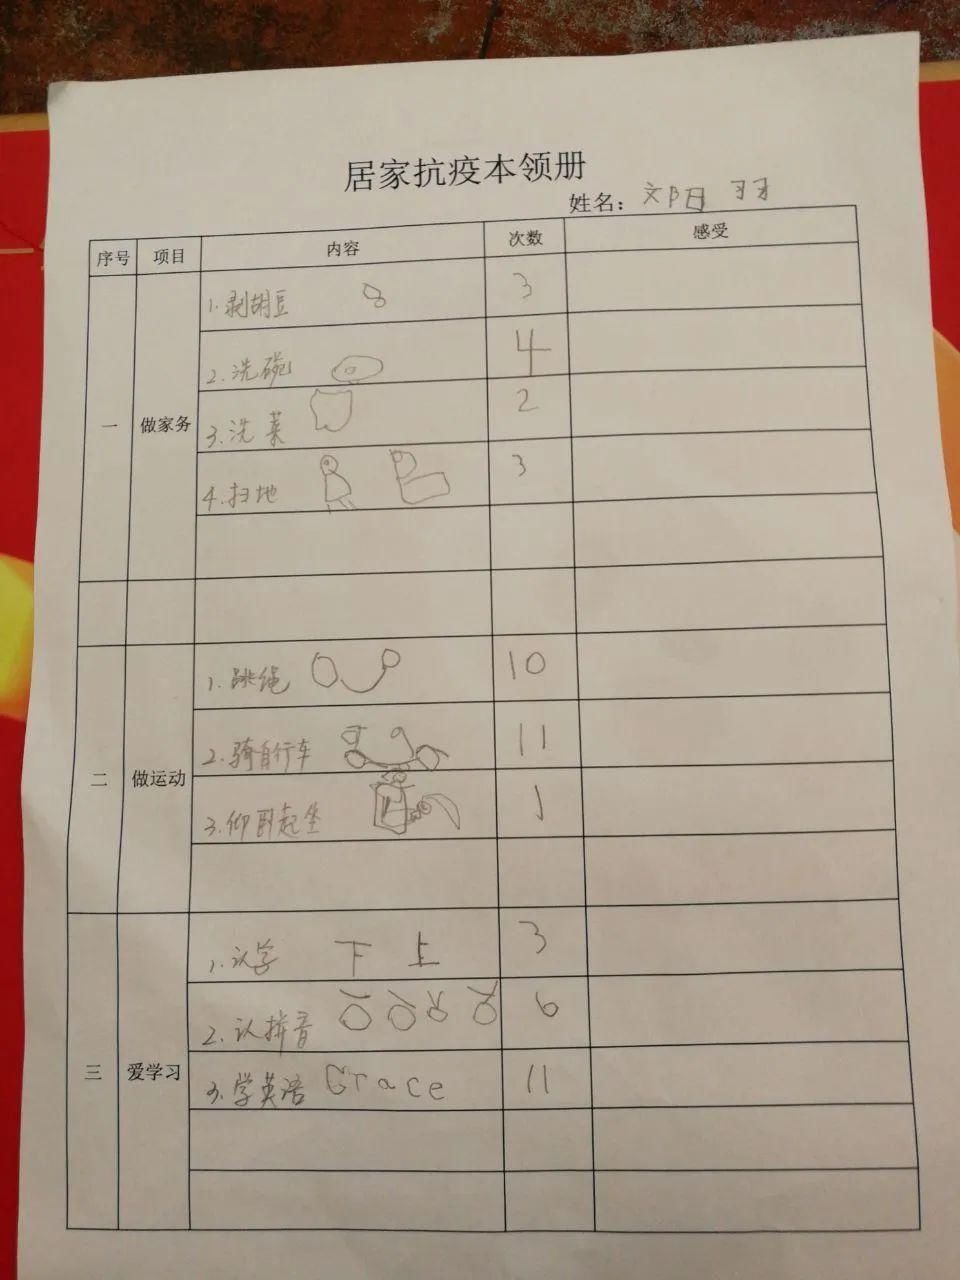 居家抗疫本领册
姓名：文阳羽
序号 项目 内容 次数 感受
一 做家务
1.剥胡豆 3
2.洗碗 4
3.洗菜 2
4.扫地 3
二 做运动
1.跳绳 10
2.骑自行车 11
3.仰卧起坐 1
三 爱学习
1.认字 下 上 3
2.认拼音 6
3.学英语 Grace 11